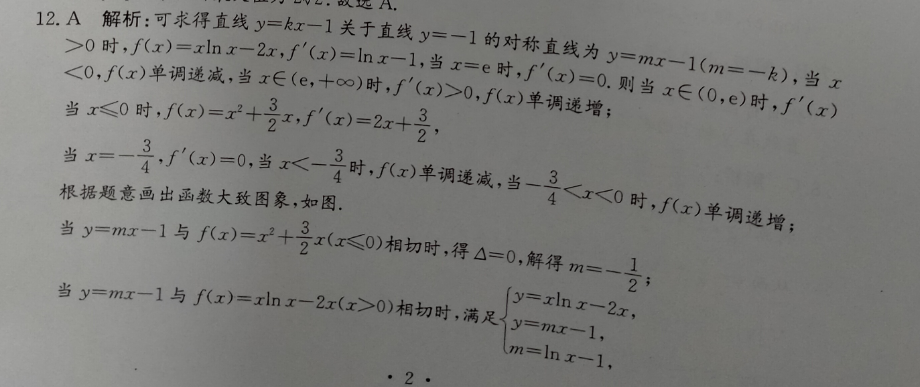 故选 A.
12. A 解析:可求得直线 y=kx-1 关于直线 y=-1 的对称直线为 y=mx-1(m=-k),当 x
>0 时,f(x)=xln x-2x,f'(x)=ln x-1,当 x=e 时,f'(x)=0. 则当 x∈(0,e)时,f'(x)
<0,f(x)单调递减,当 x∈(e,+∞)时,f'(x)>0,f(x)单调递增;
当 x≤0 时,f(x)=x²+3/2x,f'(x)=2x+3/2,
当 x=-3/4,f'(x)=0,当 x<-3/4时,f(x)单调递减,当-3/4<x<0 时,f(x)单调递增;
根据题意画出函数大致图象,如图.
当 y=mx-1 与 f(x)=x²+3/2x(x≤0)相切时,得 Δ=0,解得 m=-1/2;
当 y=mx-1 与 f(x)=xln x-2x(x>0)相切时,满足{y=xln x-2x,
y=mx-1,
m=ln x-1,
· 2 ·